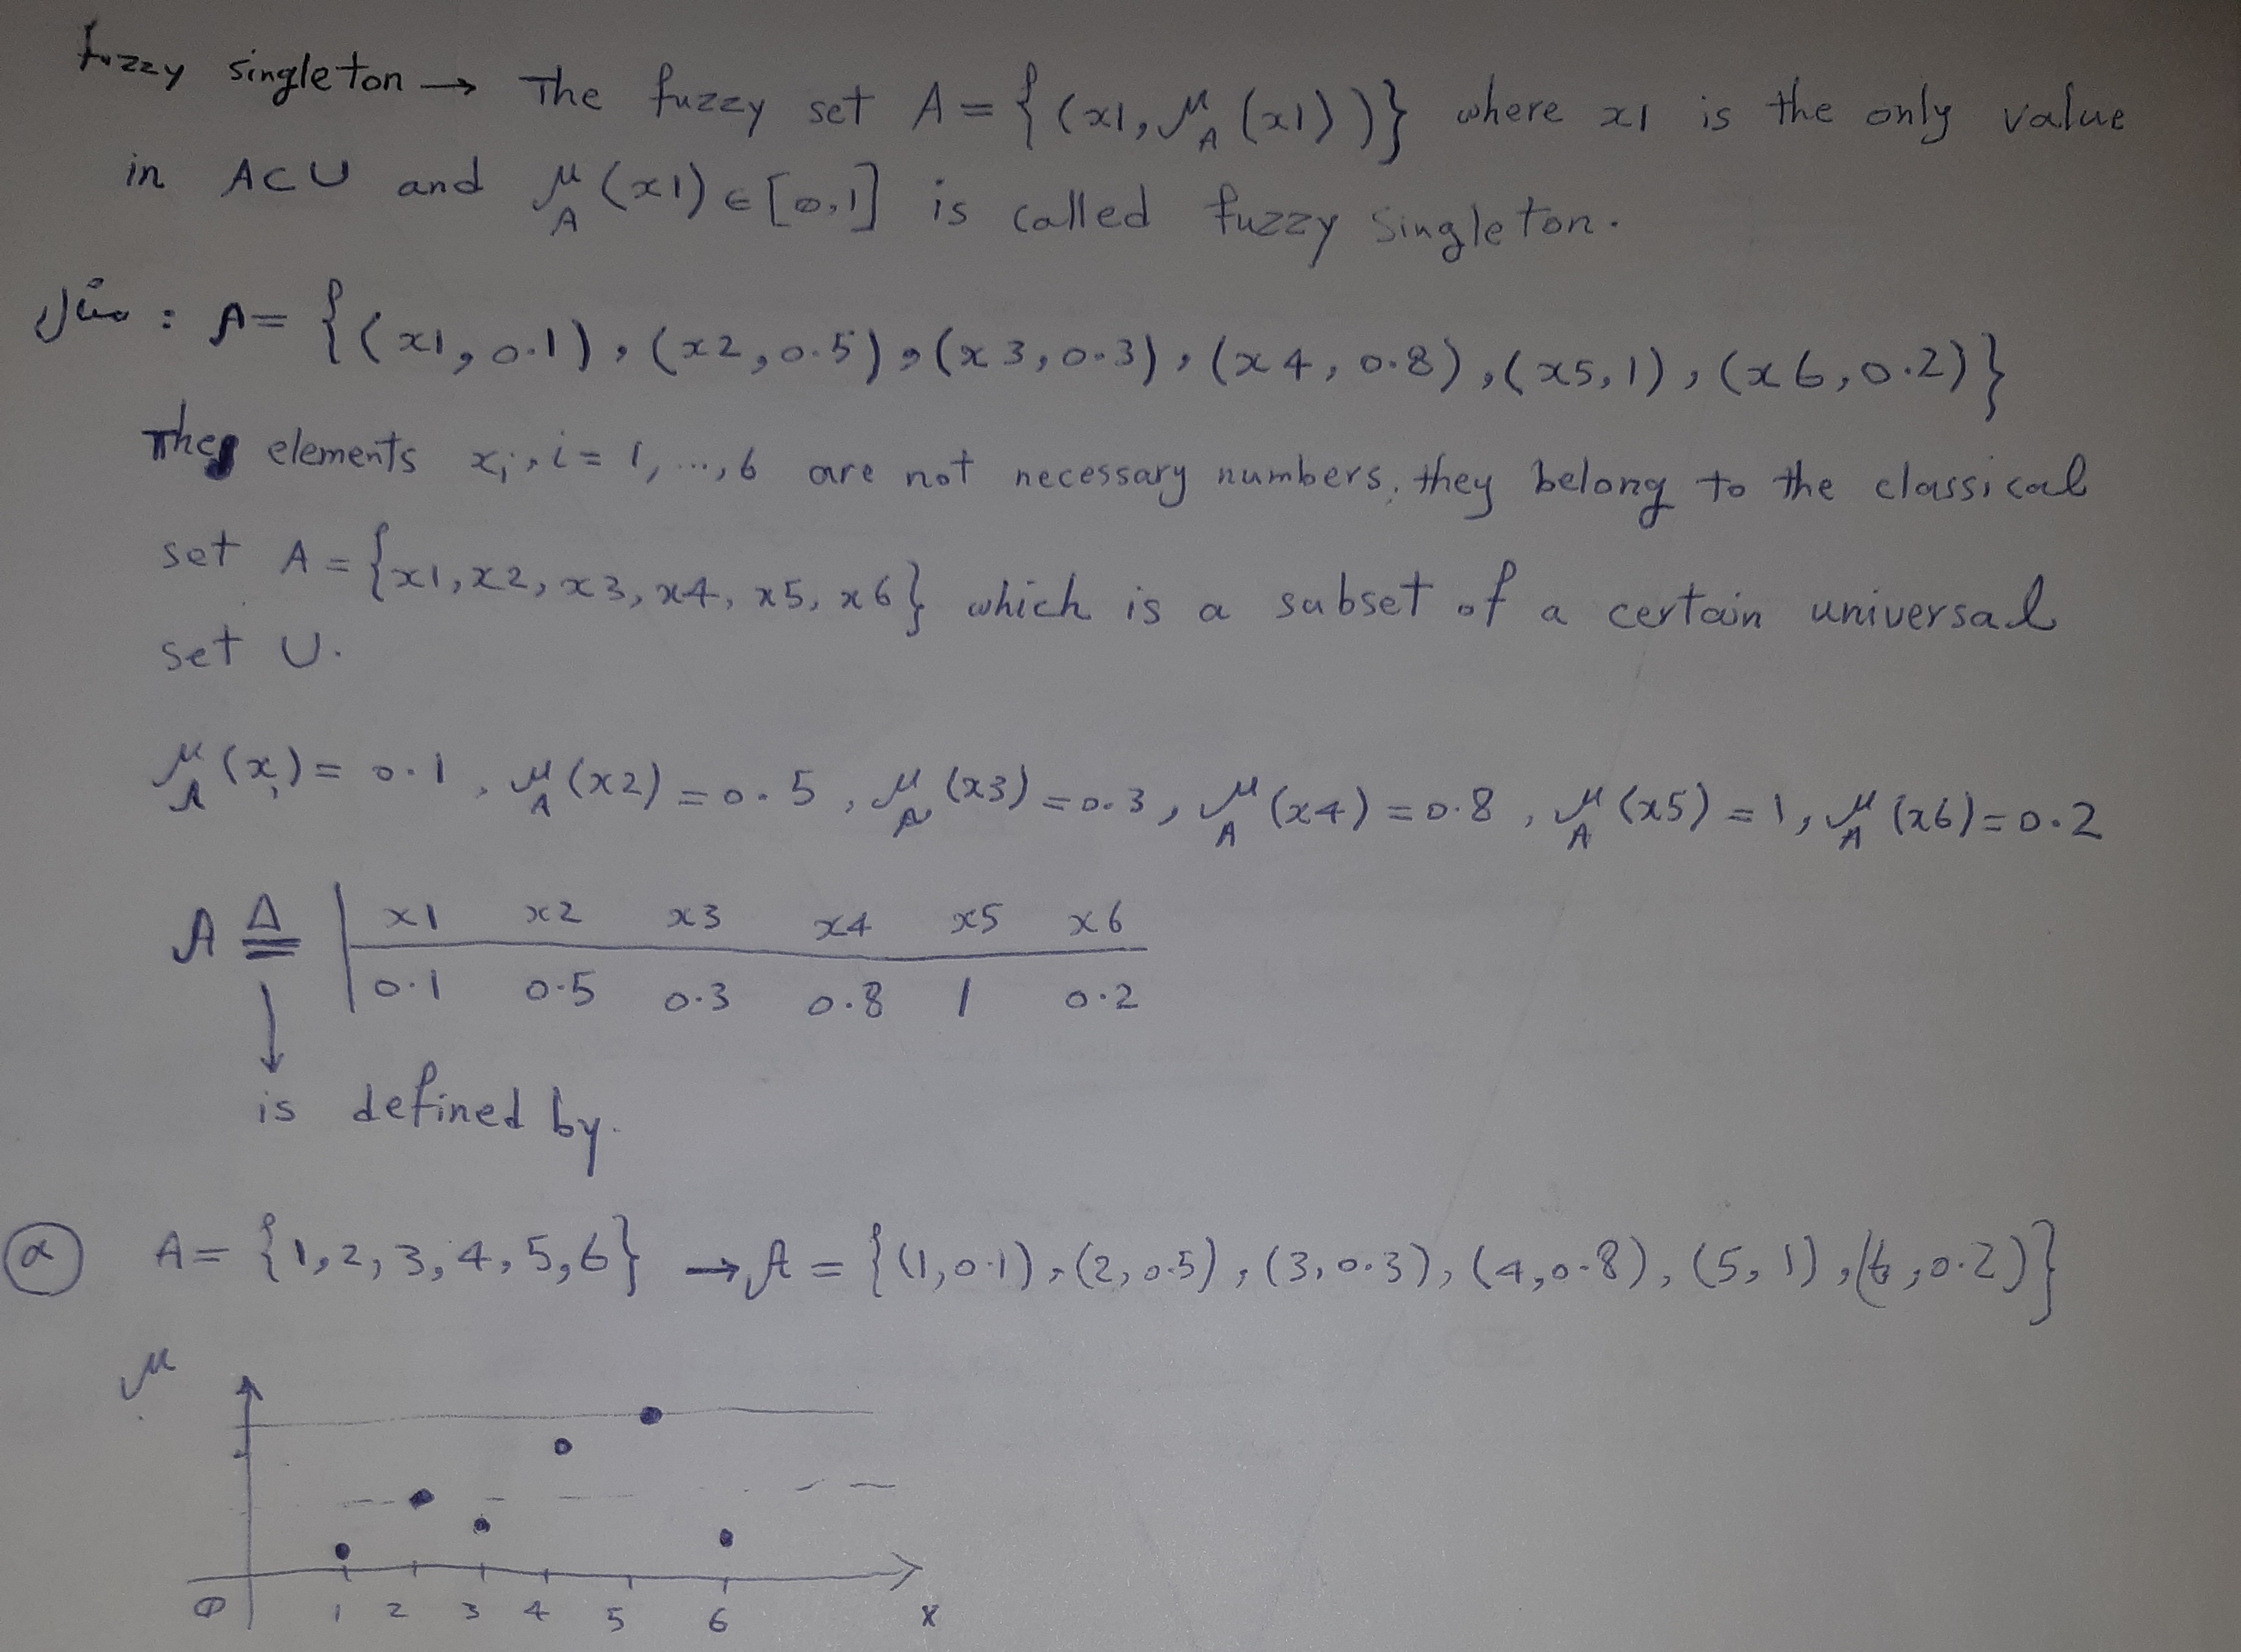 fuzzy singleton → The fuzzy set A = {(x1, μ_A(x1))} where x1 is the only value
in A⊂U and μ_A(x1) ∈ [0,1] is called fuzzy singleton.
مثال : A = {(x1, 0.1), (x2, 0.5), (x3, 0.3), (x4, 0.8), (x5, 1), (x6, 0.2)}
The elements xi, i = 1, ..., 6 are not necessary numbers, they belong to the classical
set A = {x1, x2, x3, x4, x5, x6} which is a subset of a certain universal
set U.
μ_A(x1) = 0.1, μ_A(x2) = 0.5, μ_A(x3) = 0.3, μ_A(x4) = 0.8, μ_A(x5) = 1, μ_A(x6) = 0.2
A ≜ | x1 x2 x3 x4 x5 x6
0.1 0.5 0.3 0.8 1 0.2
↓
is defined by.
A = {1, 2, 3, 4, 5, 6} → A = {(1, 0.1), (2, 0.5), (3, 0.3), (4, 0.8), (5, 1), (6, 0.2)}
μ
0 1 2 3 4 5 6 x